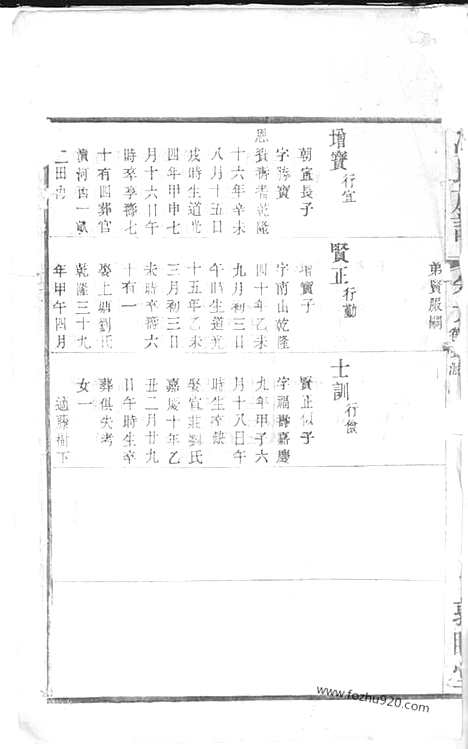 弟賢嚴嗣
增寶 行宜
朝宣長子
字勝寶
恩賚壽耆乾隆
十六年辛未
八月十五日
戌時生道光
四年甲申七
月十六日午
時卒享壽七
十有四葬官
二田
賢正 行勤
增寶子
字南山乾隆
四十年乙未
九月初三日
午時生道光
十五年乙未
三月初三日
未時卒壽六
十有一
娶上鼎劉氏
乾隆三十九
年甲午四月
士訓 行儉
賢正似子
字福壽嘉慶
九年甲子六
月十八日午
時生卒缺
娶宜莊劉氏
嘉慶十年乙
丑二月廿九
日午時生卒
葬俱失考
女一
適藤樹下
www.fozhu920.com